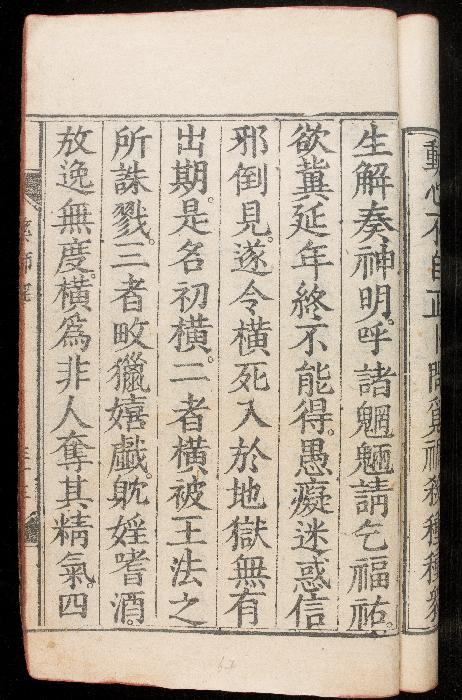 動心不自正卜問覓禍殺種種衆
生解奏神明。呼諸魍魎請乞福祐。
欲冀延年終不能得。愚癡迷惑信
邪倒見。遂令橫死入於地獄無有
出期。是名初橫。二者橫被王法之
所誅戮。三者畋獵嬉戲。耽婬嗜酒。
放逸無度。橫爲非人奪其精氣。四
藥師經